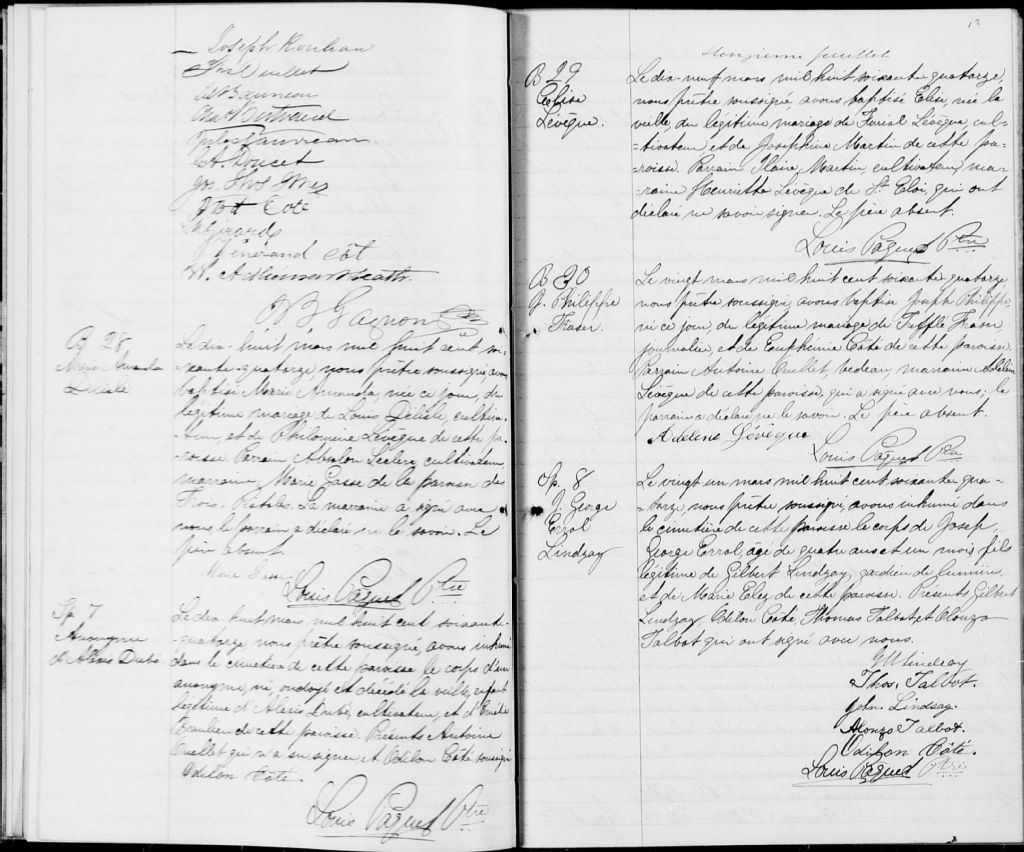 Joseph Rouleau
Jos Ouellet
Jules
Jos
Côté
Girard
Vénérand Côt
W.
Gagnon Ptre
B 28
Marie Amanda
Delisle
Le dix-huit mars mil huit cent soi-
-xante-quatorze, nous prêtre soussigné, avons
baptisé Marie Amanda née ce jour, du
légitime mariage de Louis Delisle, cultiva-
-teur, et de Philomène Lévêque de cette pa-
-roisse. Parrain Absalon Leclerc, cultivateur,
marraine, Marie Gasse de la paroisse des
Trois-Pistoles. La marraine a signé avec
nous le parrain a déclaré ne le savoir. Le
père absent.
Marie Gasse
Louis Paquet Ptre
Sp. 7
Anonyme
d'Alexis Dubé
Le dix-huit mars mil huit cent soixante-
quatorze, nous prêtre soussigné, avons inhumé
dans le cimetière de cette paroisse le corps d'un
anonyme, né, ondoyé et décédé la veille, enfant
légitime d'Alexis Dubé, cultivateur, et d'Emélie
Beaulieu de cette paroisse. Présents Antoine
Ouellet qui n'a su signer et Odilon Côté soussigné
Odilon Côté.
Louis Paquet Ptre
12
Onzième feuillet
B 29
Elise
Lévêque.
Le dix-neuf mars mil huit soixante quatorze,
nous prêtre soussigné, avons baptisé Elise, née la
veille, du légitime mariage de Farial Lévêque, cul-
-tivateur et de Joséphine Martin de cette pa-
-roisse. Parrain Ilaire Martin, cultivateur, ma-
-raine Henriette Lévêque de St Eloi, qui ont
déclaré ne savoir signer. Le père absent.
Louis Paquet Ptre
B 30
J. Philippe
Fraser.
Le vingt mars mil huit cent soixante quatorze
nous prêtre soussigné, avons baptisé Joseph Philippe,
né ce jour, du légitime mariage de Tufflé Fraser,
journalier, et de Euphémie Côté de cette paroisse.
Parrain Antoine Ouellet, bedeau, marraine Adeline
Lévêque de cette paroisse, qui a signé avec nous; le
parrain a déclaré ne le savoir. Le père absent.
Adeline Lévêque
Louis Paquet Ptre
Sp. 8
J. George
Errol
Lindzay
Le vingt un mars mil huit cent soixante qua-
-torze, nous prêtre soussigné, avons inhumé dans
le cimetière de cette paroisse le corps de Josep,
George Errol, âgé de quatre ans et un mois, fils
légitime de Gilbert Lindzay, gardien de lumière,
et de Marie Elez de cette paroisse. Présents Gilbert
Lindzay Odilon Côté, Thomas Talbot et Alonzo
Talbot qui ont signé avec nous.
Lindsay
Thos. Talbot.
John. Lindsay.
Alonzo Talbot.
Odilon Côté.
Louis Paquet Ptre